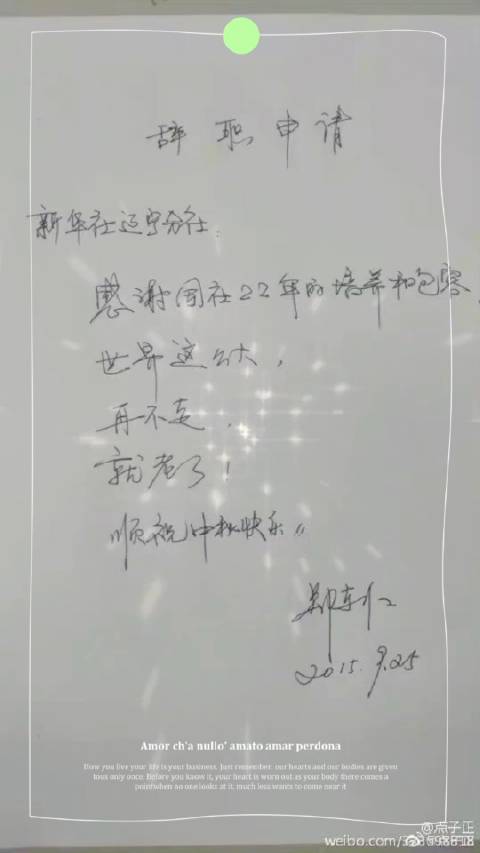 辞职申请
新华社辽宁分社：
感谢国社22年的培养和包容，
世界这么大，
再不走，
就老了！
顺祝中秋快乐。
2015.9.25
Amor ch'a nullo' amato amar perdona
How you live your life is your business. Just remember, our hearts and our bodies are given
to us only once. Before you know it, your heart is worn out as your body there comes a
point when no one looks at it, much less wants to come near it
@点子正